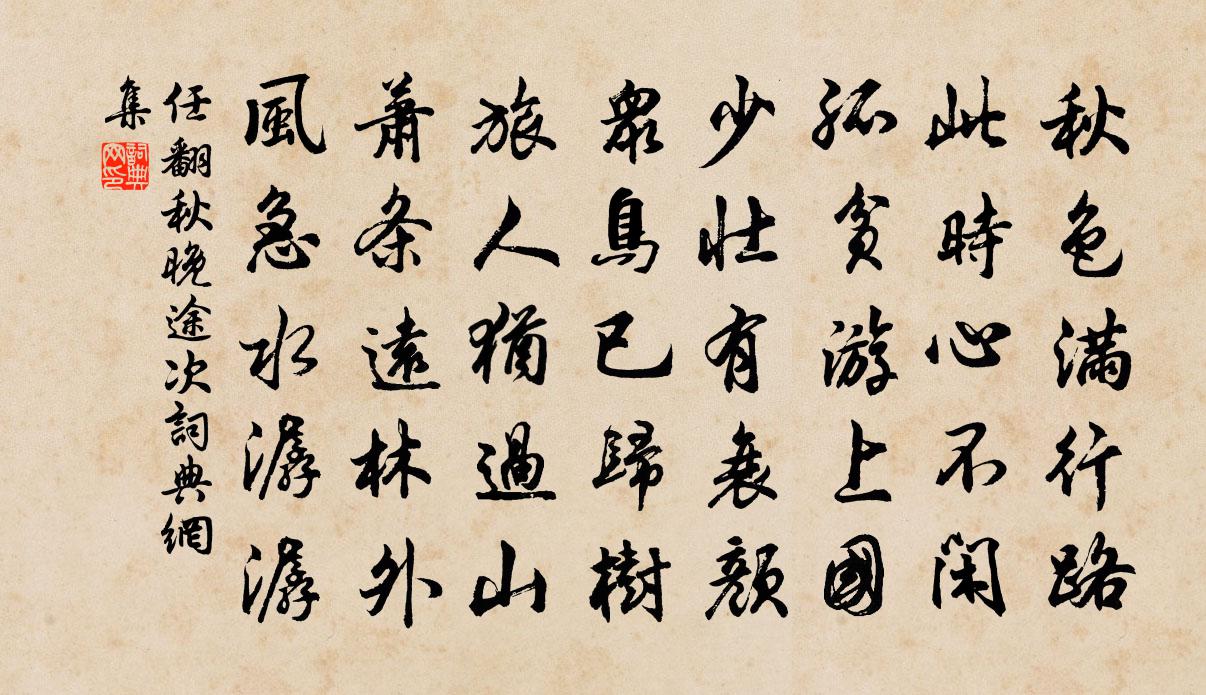 秋色滿行路
此時心不閑
孤貧游上國
少壯有衰顏
眾鳥已歸樹
旅人猶過山
蕭条遠林外
風急水潺潺
任翻秋晚途次詞典網
集
詞典網印